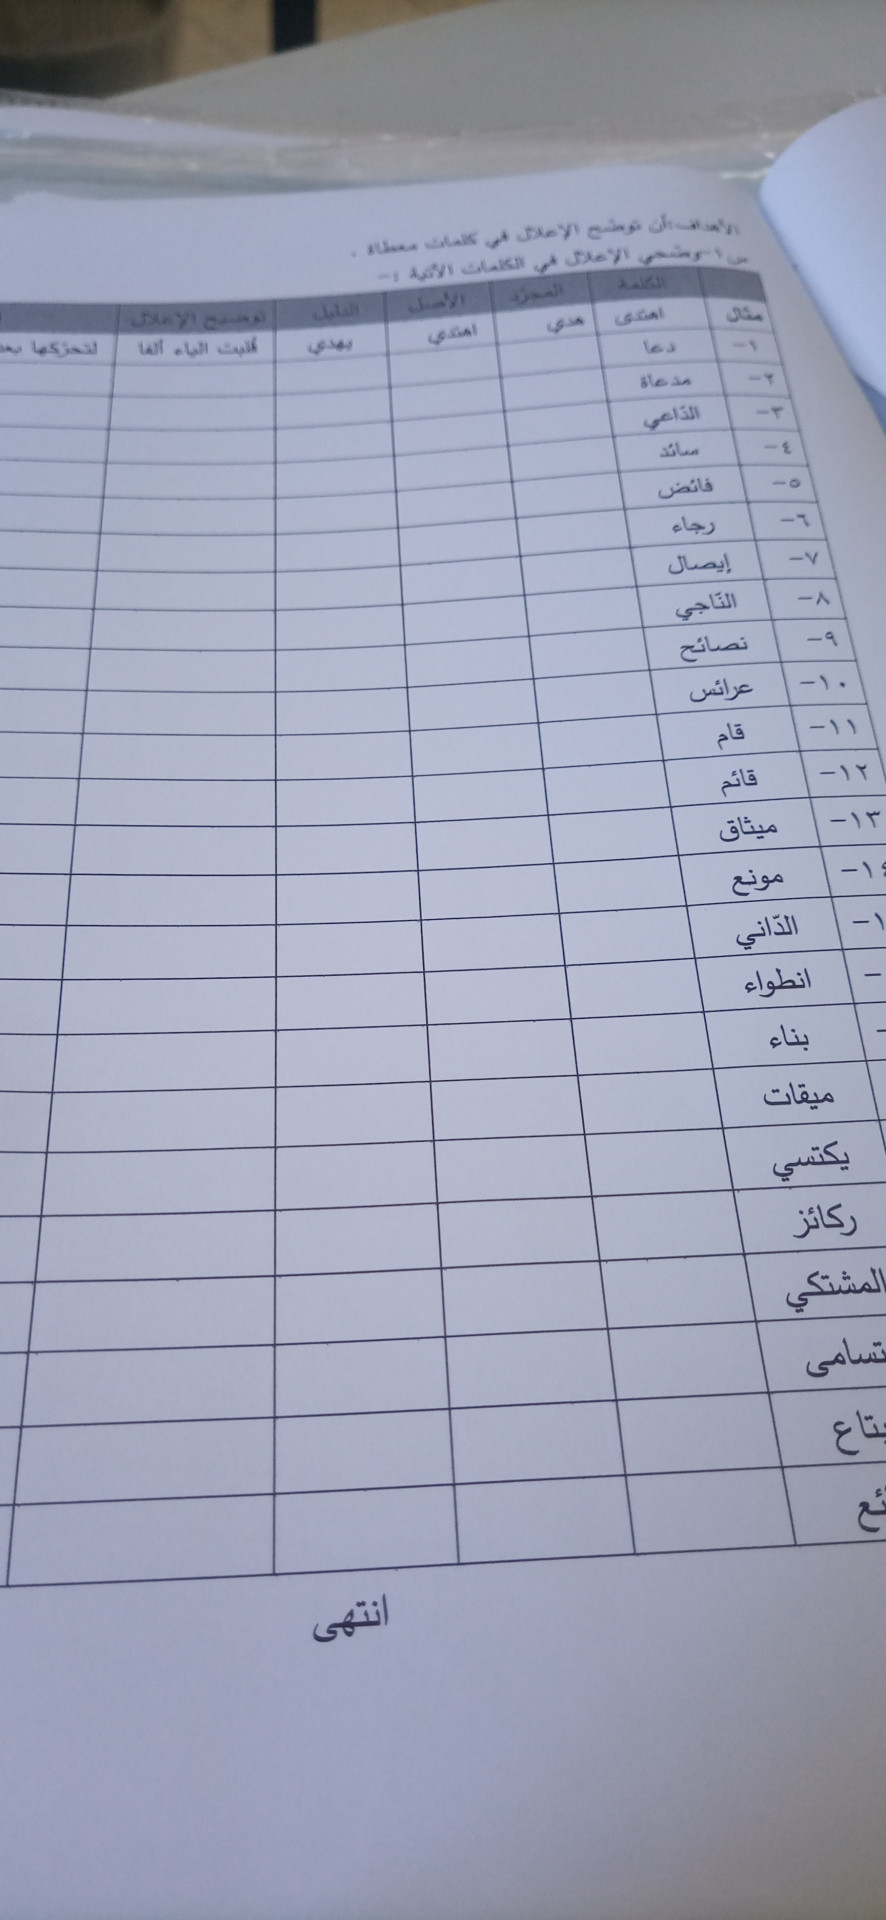 الأهداف:أن توضح الإعلال في كلمات معطاة .
س١-وضحي الإعلال في الكلمات الآتية :-
الكلمة المجرد الأصل الدليل توضيح الإعلال
مثال اهتدى هدي اهتدي يهدي قلبت الياء ألفا لتحركها
١- دعا
٢- مدعاة
٣- الدّاعي
٤- سائد
٥- فائض
٦- رجاء
٧- إيصال
٨- النّاجي
٩- نصائح
١٠- عرائس
١١- قام
١٢- قائم
١٣- ميثاق
١٤- مونع
الدّاني
انطواء
بناء
ميقات
يكتسي
ركائز
المشتكي
تسامى
انتهى